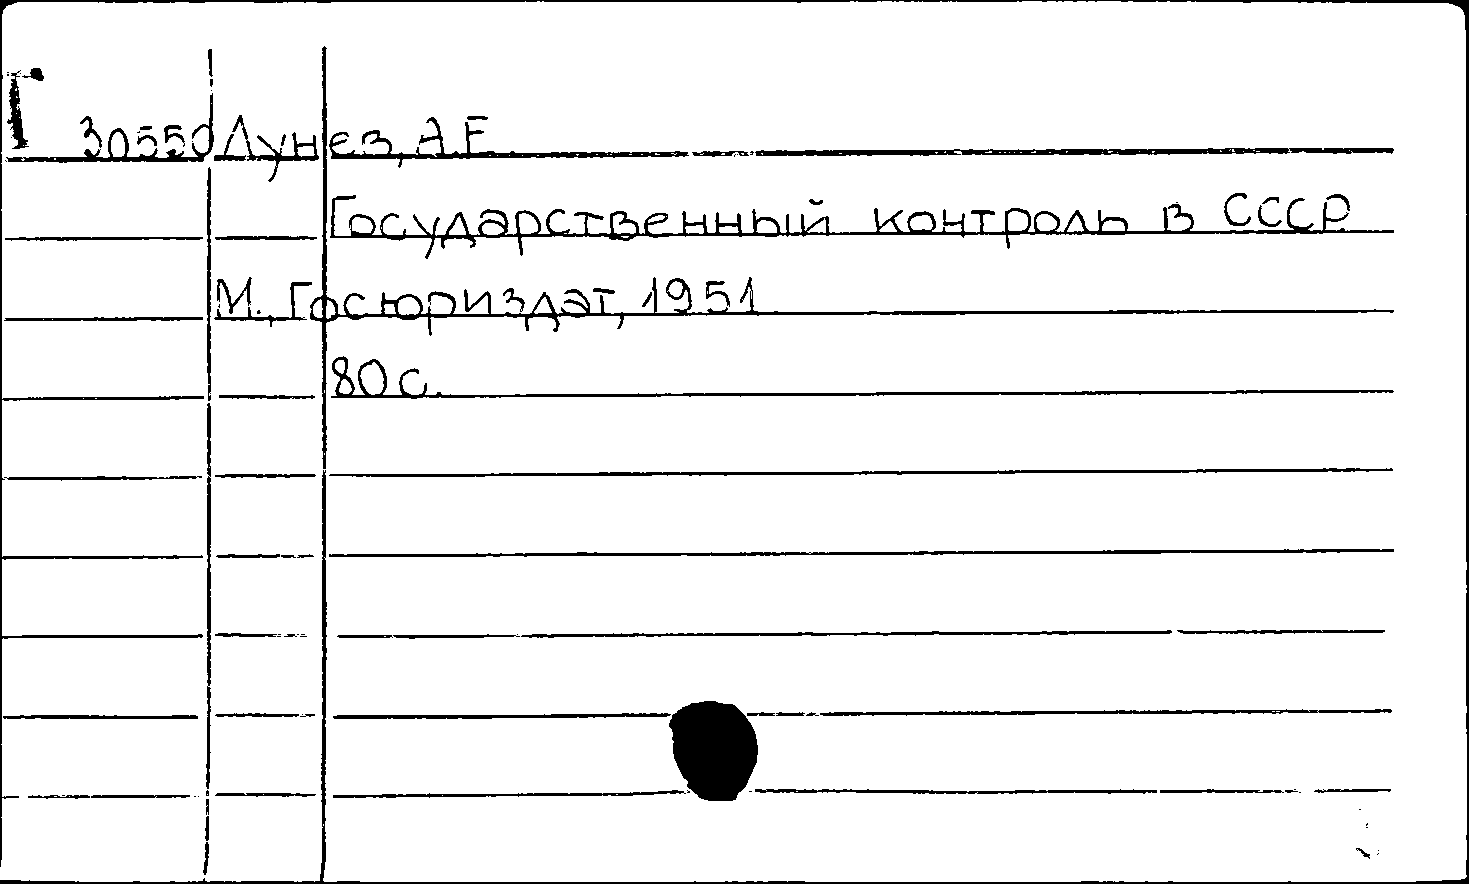 Г 30550 Лунев, А.Е.
Государственный контроль в СССР
М., Госюриздат, 1951
80 с.